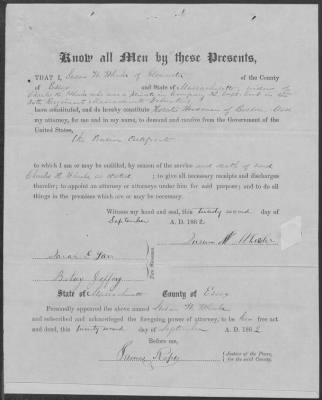 Know all Men by these Presents,
THAT I, Susan W. Wheeler of Gloucester of the County
of Essex and State of Massachusetts, widow of
Charles H. Wheeler who was a private in Company
Regiment Massachusetts Volunteers
have constituted, and do hereby constitute Horatio Woodman of Boston, Mass
my attorney, for me and in my name, to demand and receive from the Government of the
United States,
the Pension Certificate
to which I am or may be entitled, by reason of the service and death of said
Charles H. Wheeler as stated ; to give all necessary receipts and discharges
therefor; to appoint an attorney or attorneys under him for said purpose; and to do all
things in the premises which are or may be necessary.
Witness my hand and seal, this twenty second day of
September A. D. 1862.
Susan W. Wheeler
Sarah E.
Betsey
State of Massachusetts County of Essex
Personally appeared the above named Susan W. Wheeler
and subscribed and acknowledged the foregoing power of attorney, to be her free act
and deed, this twenty second day of September A. D. 1862
Before me,
Justice of the Peace,
for the said County.